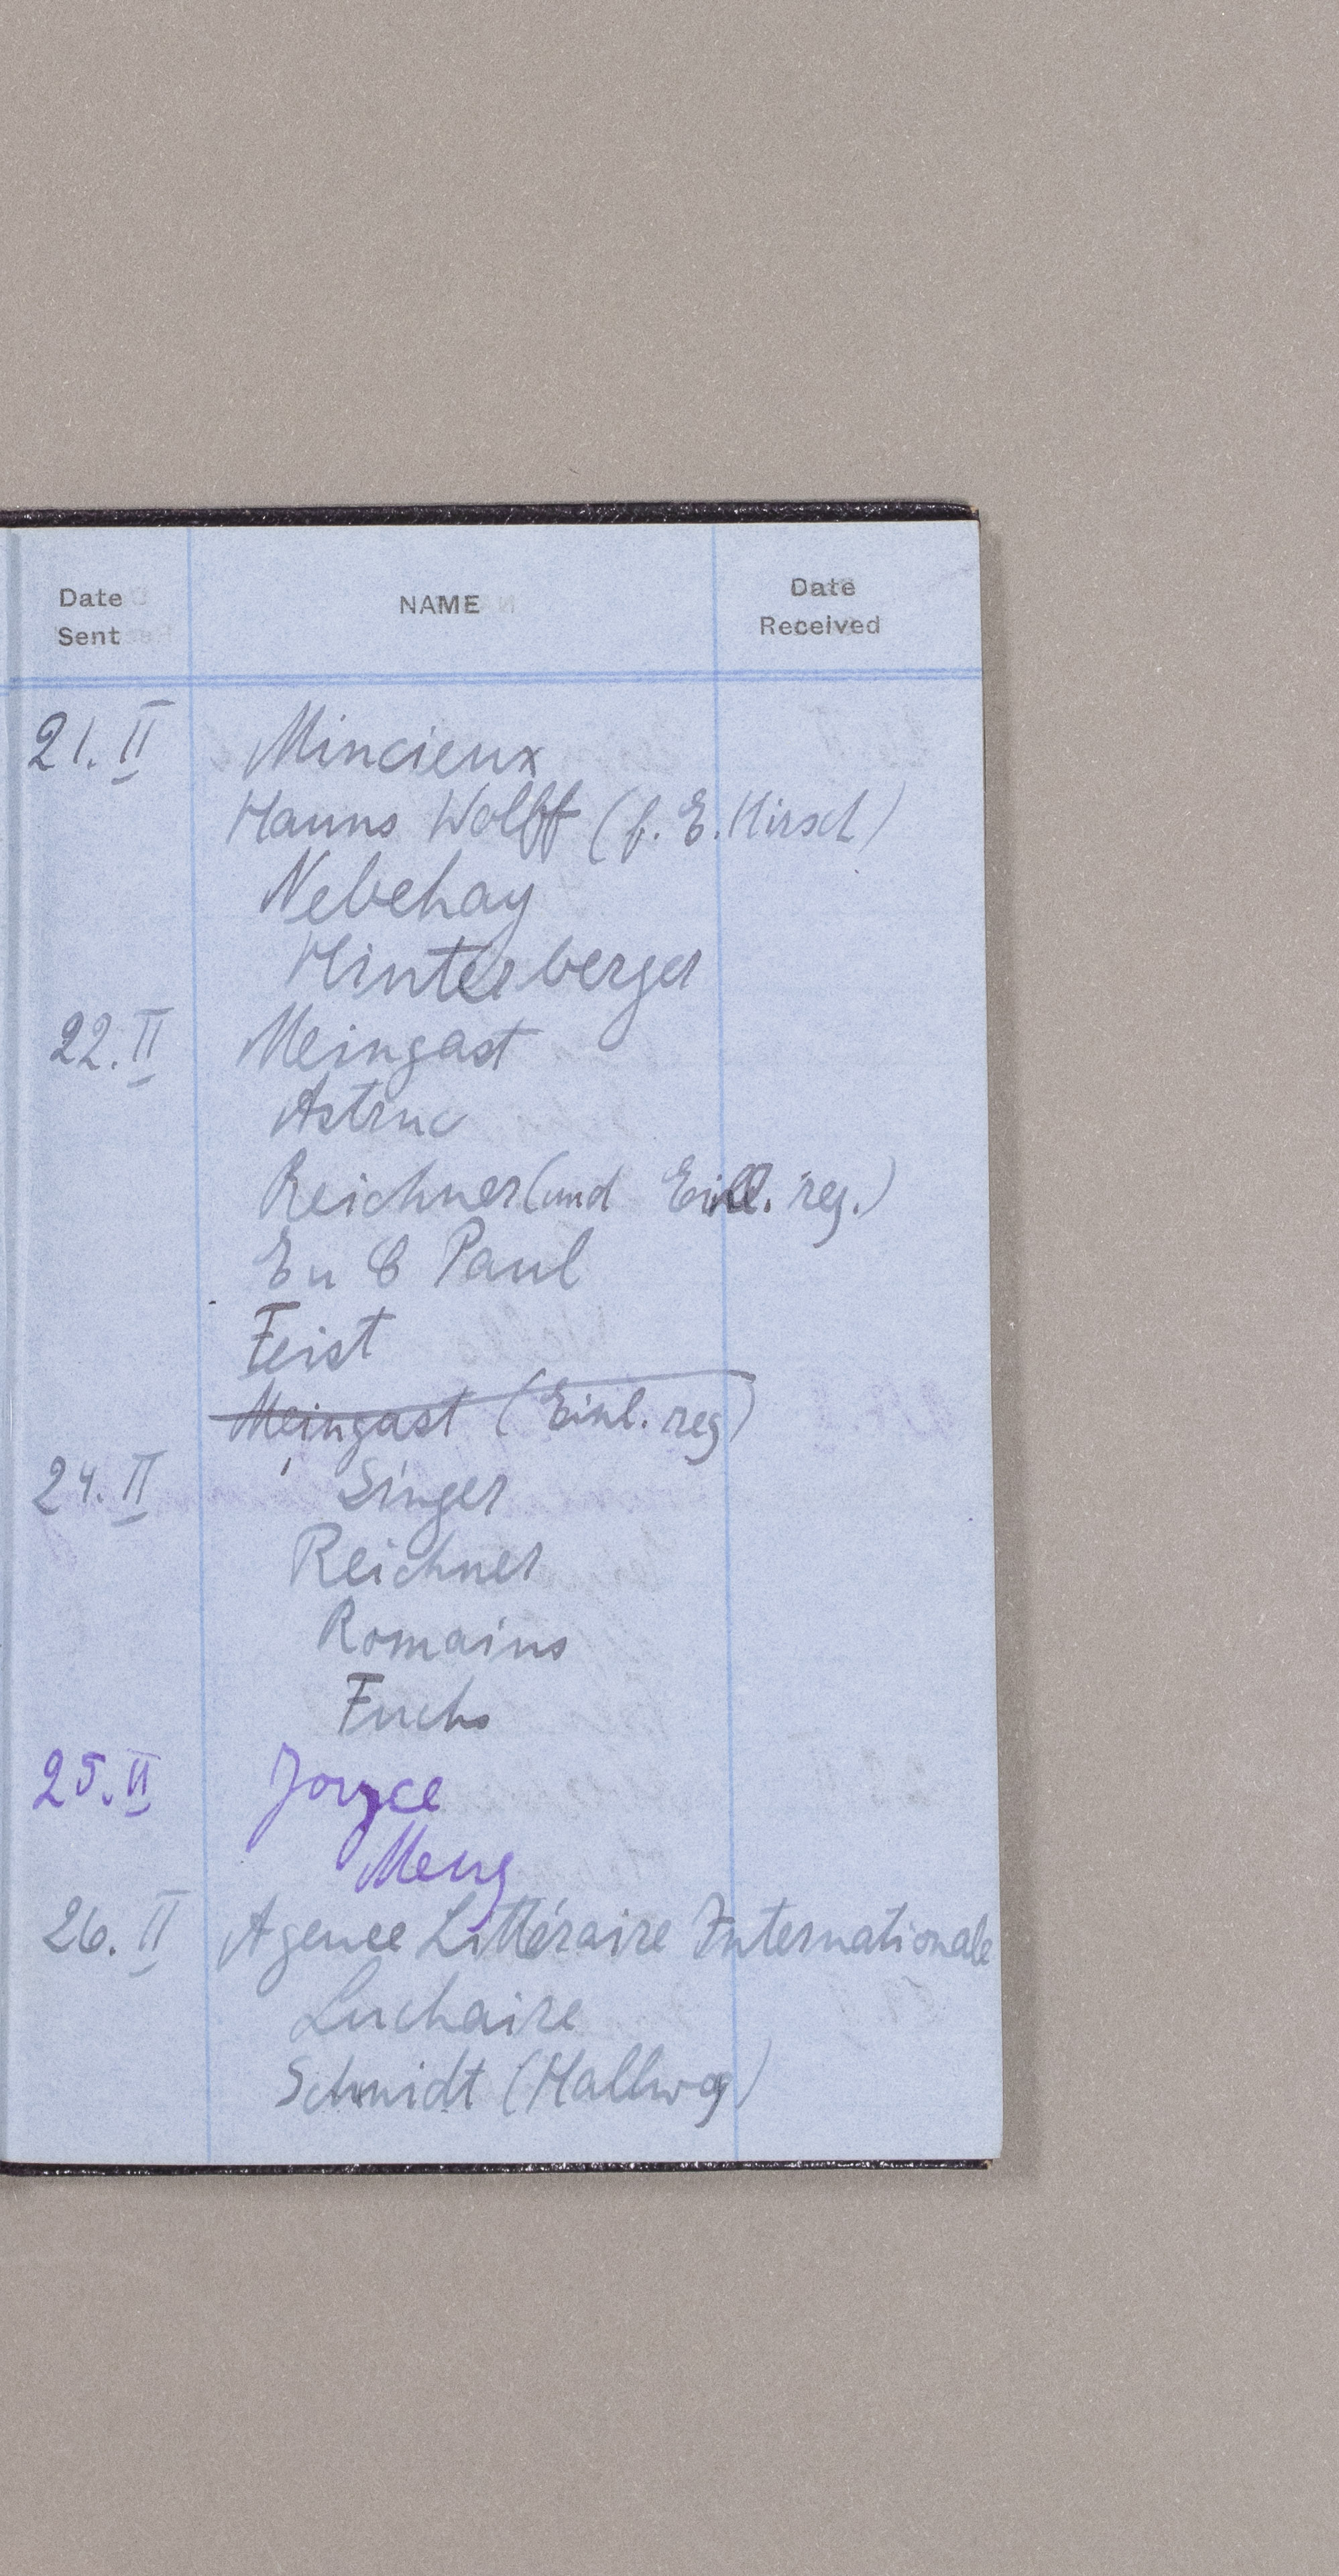 Date Sent NAME Date Received
21. II Mincieux
Hanns Wolff (f. E. Hirsch)
Nebehay
Hinterberger
22. II Meingast
Astruc
Reichner (und Einl. reg.)
E u C Paul
Feist
Meingast (Einl. reg)
24. II Singer
Reichner
Romains
Fuchs
25. II Joyce
Meng
26. II Agence Littéraire Internationale
Luchaire
Schmidt (Hallwag)